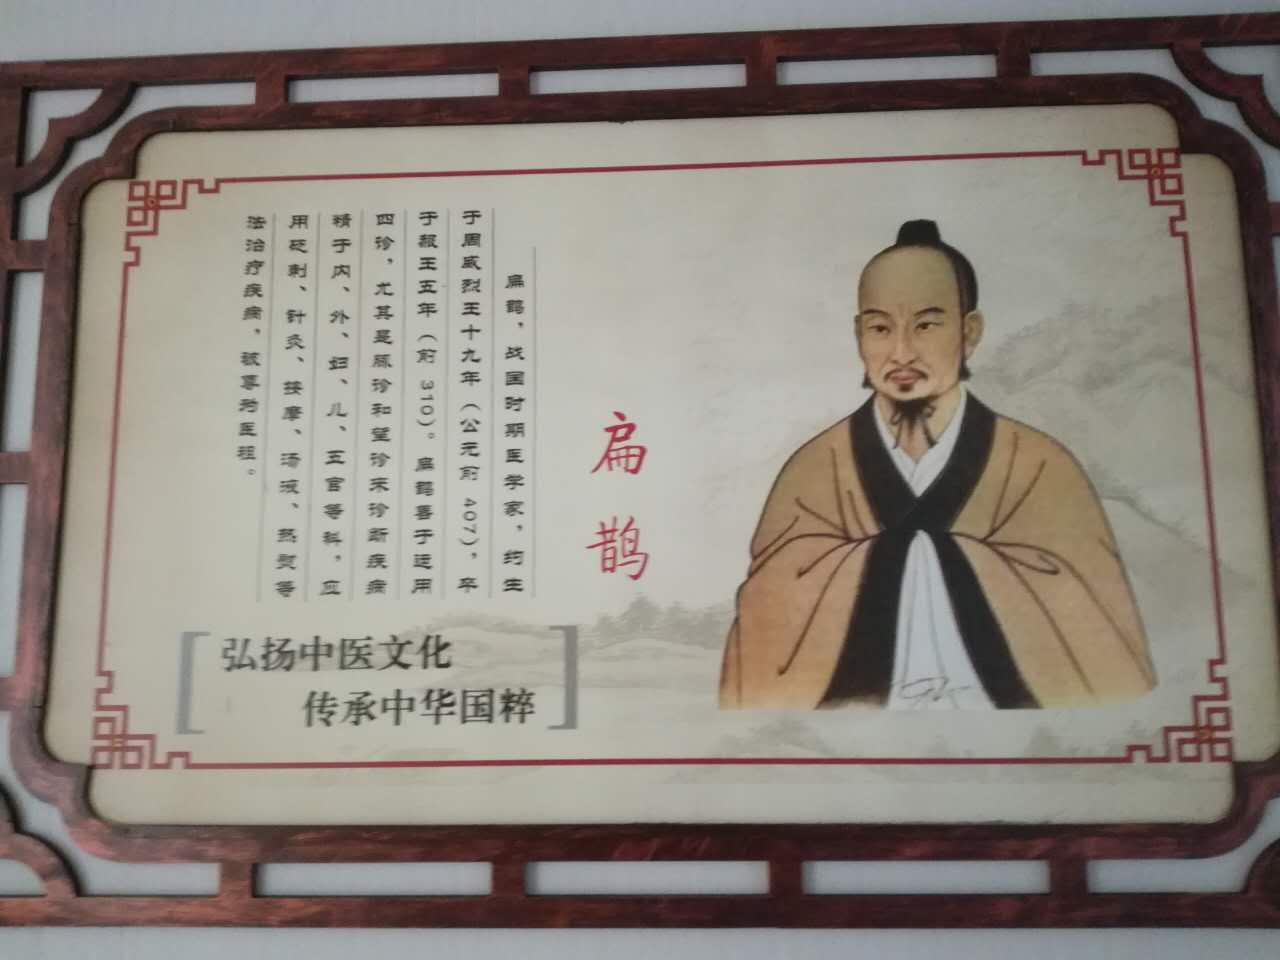 扁鹊
扁鹊，战国时期医学家，约生
于周威烈王十九年（公元前 407），卒
于赧王五年（前 310）。扁鹊善于运用
四诊，尤其是脉诊和望诊来诊断疾病
精于内、外、妇、儿、五官等科，应
用砭刺、针灸、按摩、汤液、热熨等
法治疗疾病，被尊为医祖。
弘扬中医文化
传承中华国粹